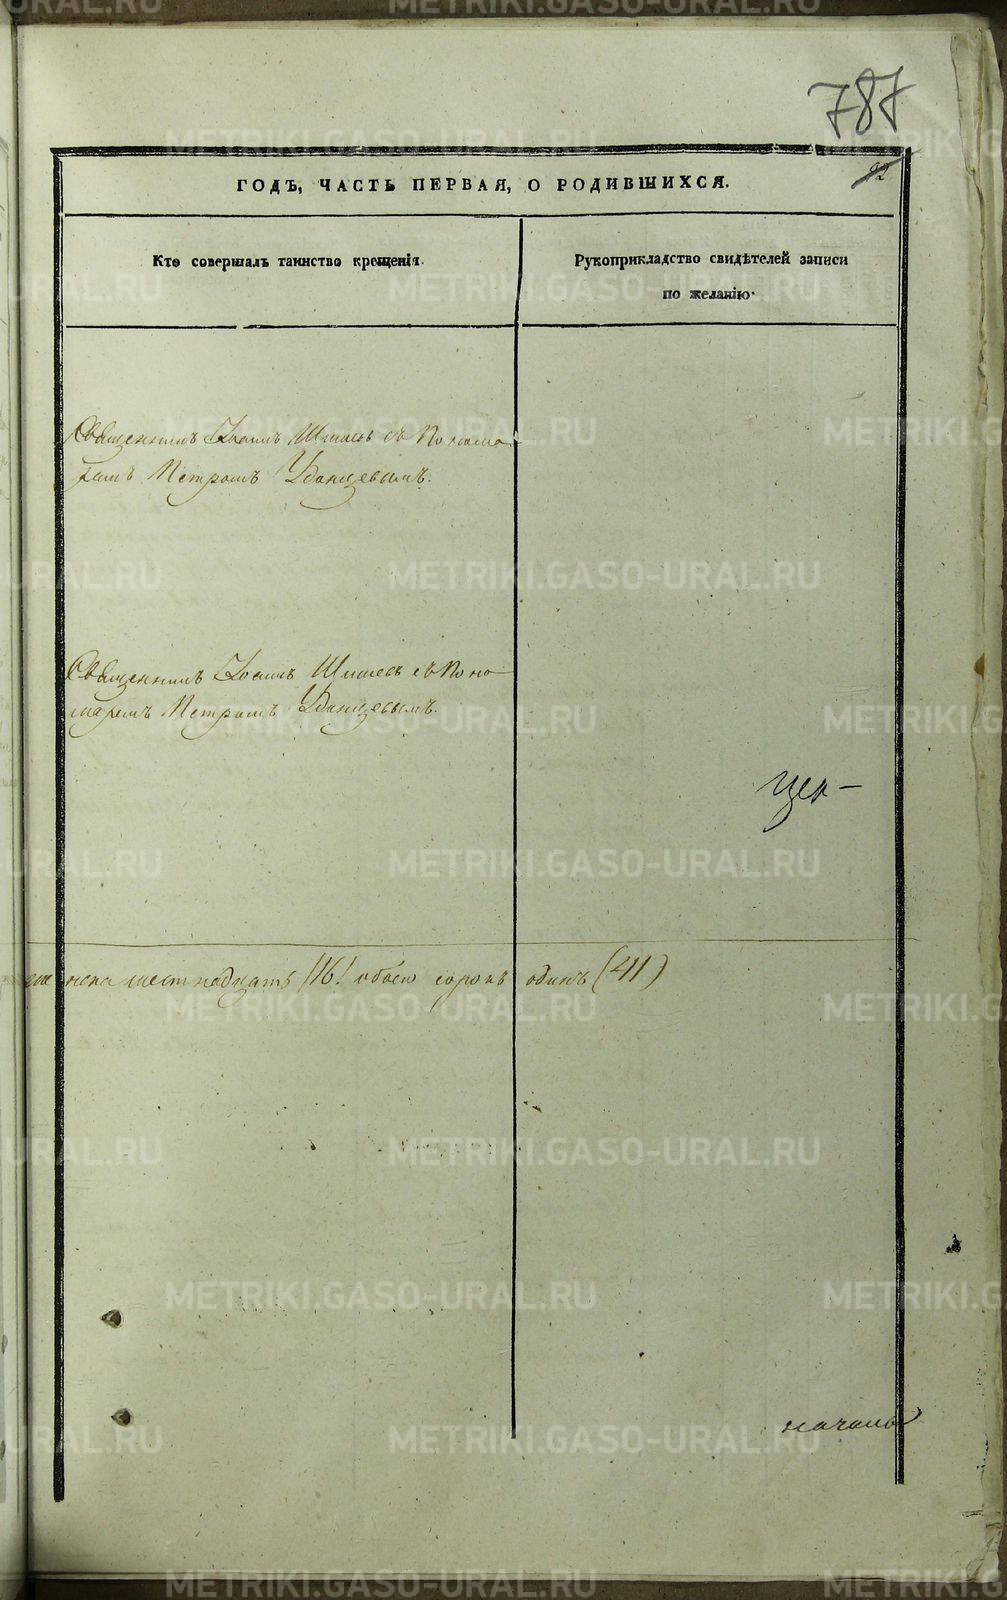 787
92
ГОДЪ, ЧАСТЬ ПЕРВАЯ, О РОДИВШИХСЯ.
Кто совершалъ таинство крещенія.
Рукоприкладство свидѣтелей записи
по желанію.
Священникъ Іоаннъ Шишевъ съ Понома-
ремъ Петромъ Удинцевымъ.
Священникъ Іоаннъ Шишевъ съ Поно-
маремъ Петромъ Удинцевымъ.
цер-
женска шестнадцать /16/ обоего сорокъ одинъ (41)
METRIKI.GASO-URAL.RU